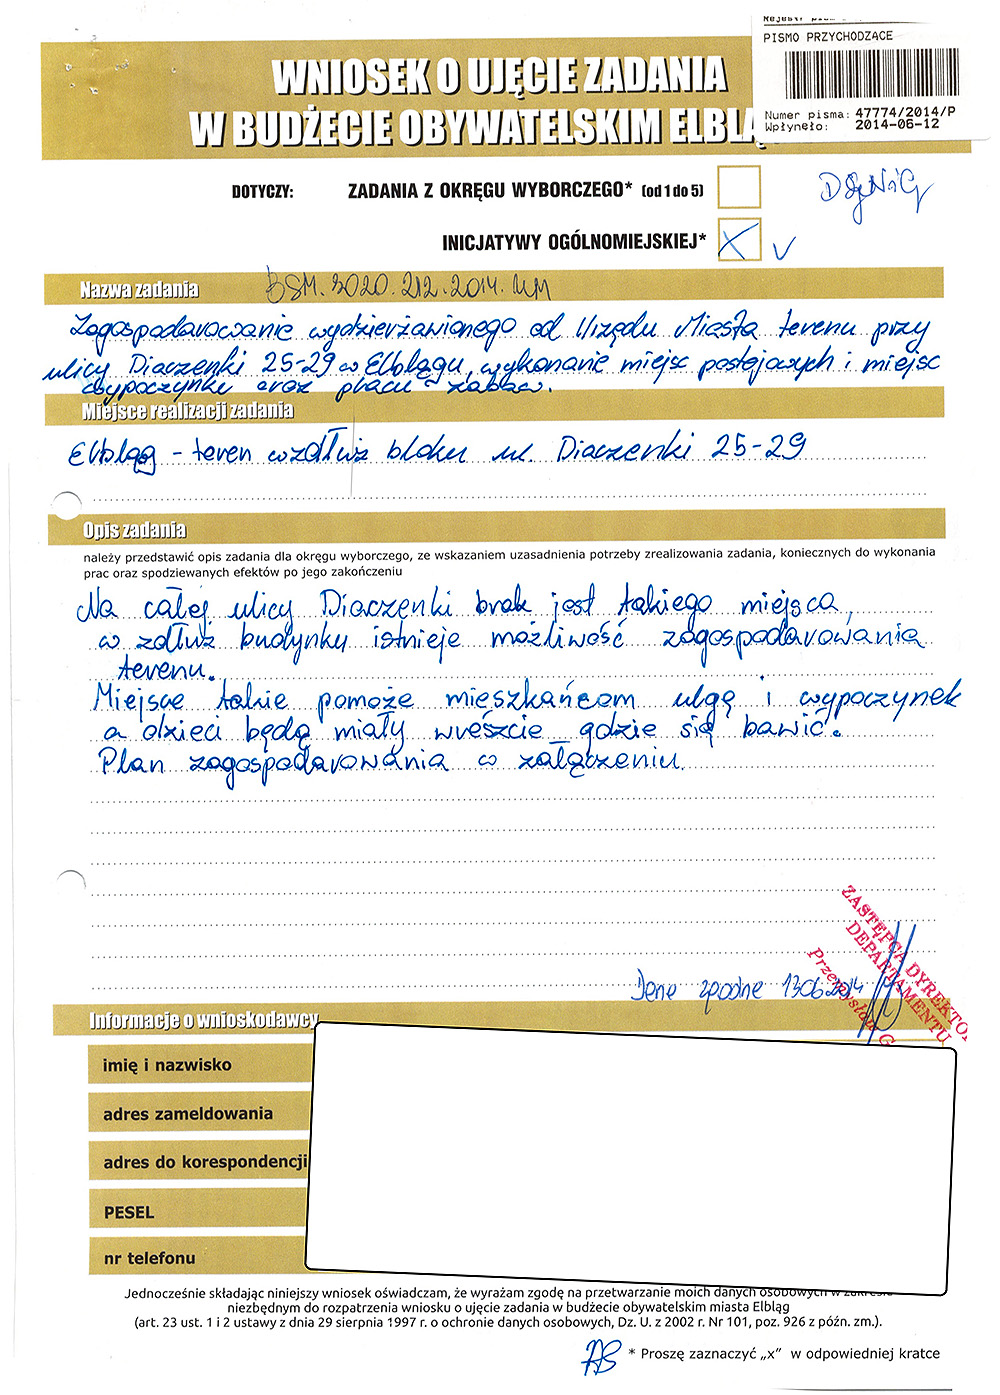 PISMO PRZYCHODZĄCE
Numer pisma: 47774/2014/P
Wpłynęło: 2014-06-12
WNIOSEK O UJĘCIE ZADANIA
W BUDŻECIE OBYWATELSKIM
DOTYCZY: ZADANIA Z OKRĘGU WYBORCZEGO* (od 1 do 5)
INICJATYWY OGÓLNOMIEJSKIEJ* X V
Nazwa zadania BSM.3020.212.2014.
Zagospodarowanie wydzierżawionego od Urzędu Miasta terenu przy
ulicy Diaczenki 25-29 w Elblągu, wykonanie miejsc postojowych i miejsc
wypoczynku oraz placu zabaw.
Miejsce realizacji zadania
Elbląg - teren wzdłuż bloku ul. Diaczenki 25-29
Opis zadania
należy przedstawić opis zadania dla okręgu wyborczego, ze wskazaniem uzasadnienia potrzeby zrealizowania zadania, koniecznych do wykonania
prac oraz spodziewanych efektów po jego zakończeniu
Na całej ulicy Diaczenki brak jest takiego miejsca,
w zdłuż budynku istnieje możliwość zagospodarowania
terenu.
Miejsce takie pomoże mieszkańcom ulgę i wypoczynek
a dzieci będą miały wreszcie gdzie się bawić.
Plan zagospodarowania w załączeniu.
ZASTĘPCA DYREKTO
DEPARTAMENTU
Przemysław G
Dane zgodne 13.06.2014
Informacje o wnioskodawcy
imię i nazwisko
adres zameldowania
adres do korespondencji
PESEL
nr telefonu
Jednocześnie składając niniejszy wniosek oświadczam, że wyrażam zgodę na przetwarzanie moich danych osobowych w zakresie
niezbędnym do rozpatrzenia wniosku o ujęcie zadania w budżecie obywatelskim miasta Elbląg
(art. 23 ust. 1 i 2 ustawy z dnia 29 sierpnia 1997 r. o ochronie danych osobowych, Dz. U. z 2002 r. Nr 101, poz. 926 z późn. zm.).
* Proszę zaznaczyć „x” w odpowiedniej kratce